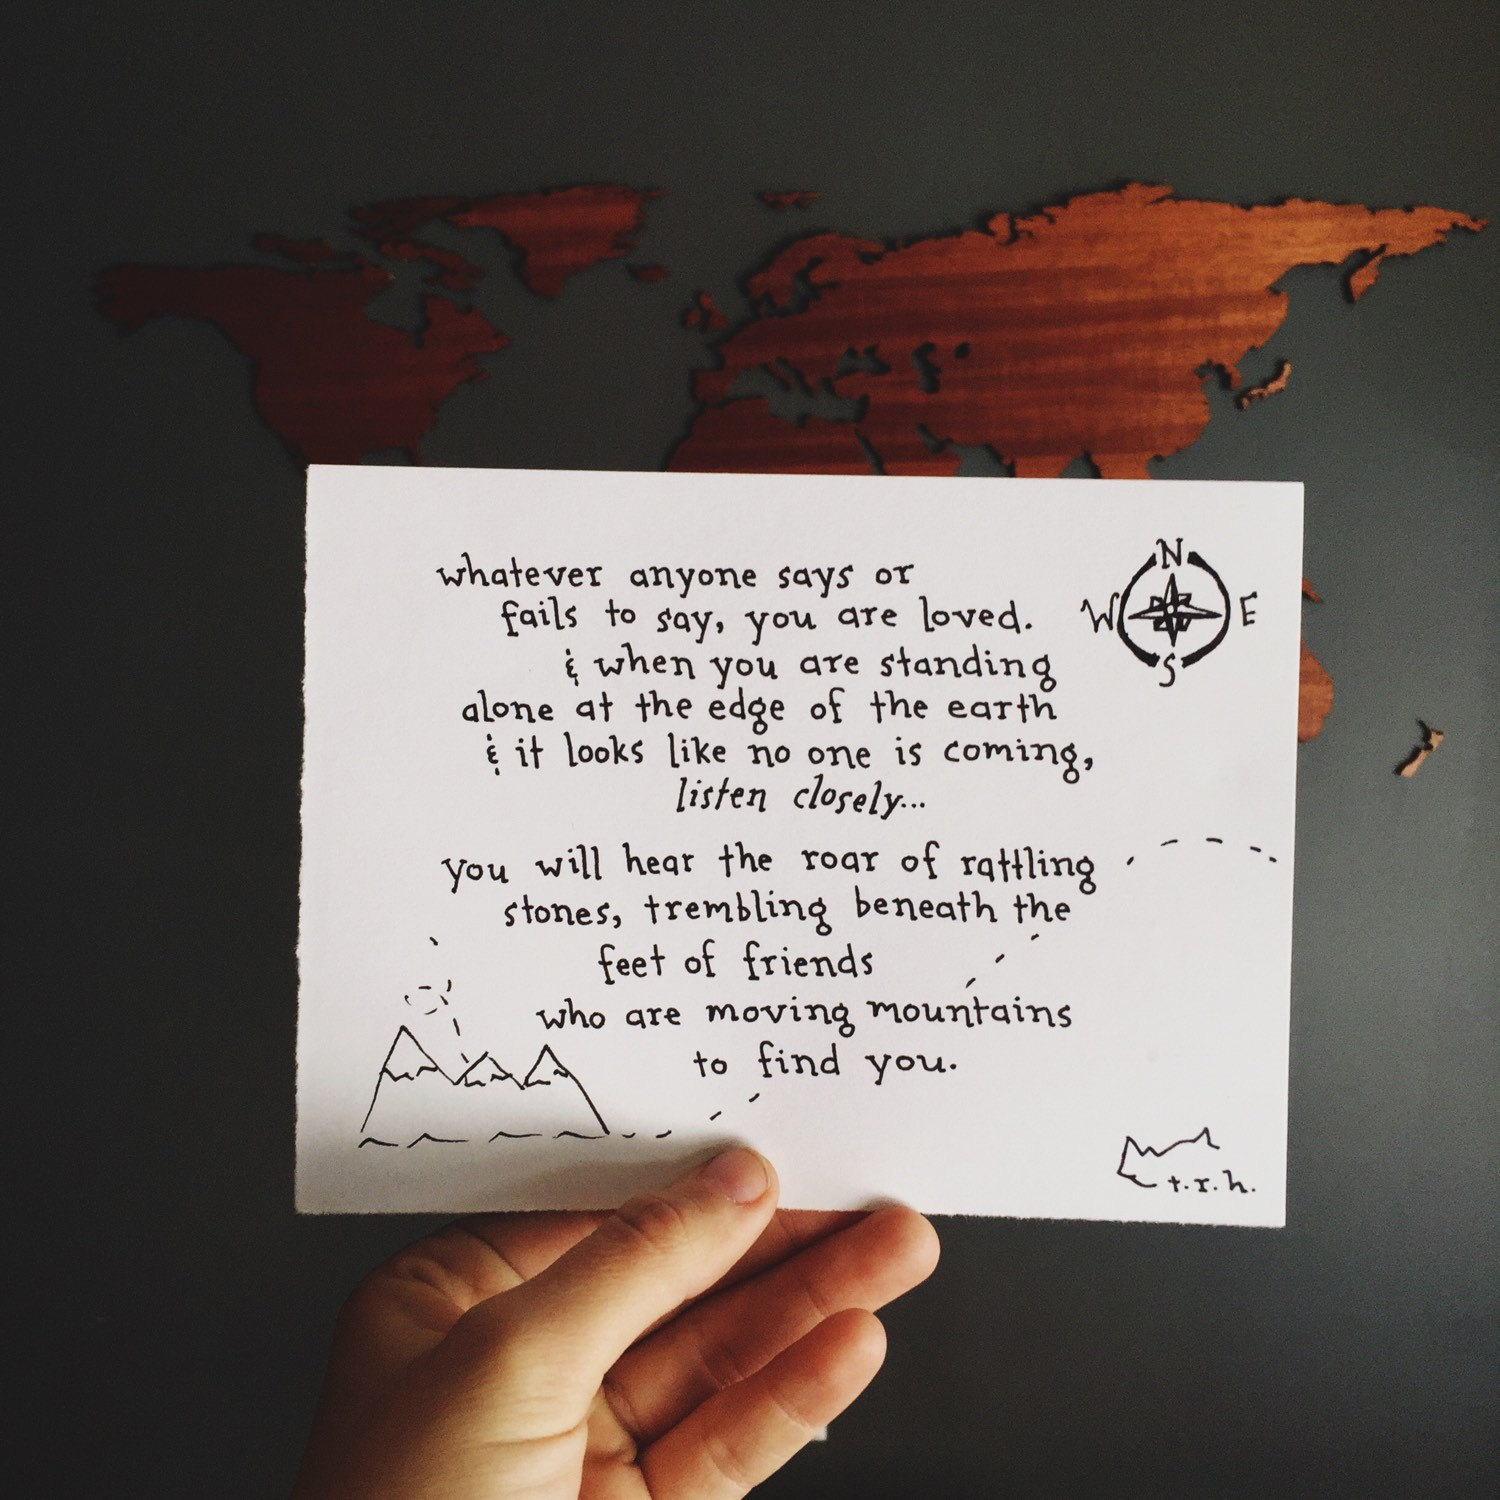 whatever anyone says or
fails to say, you are loved.
& when you are standing
alone at the edge of the earth
& it looks like no one is coming,
listen closely...
you will hear the roar of rattling
stones, trembling beneath the
feet of friends
who are moving mountains
to find you.
N
W E
S
t.r.h.